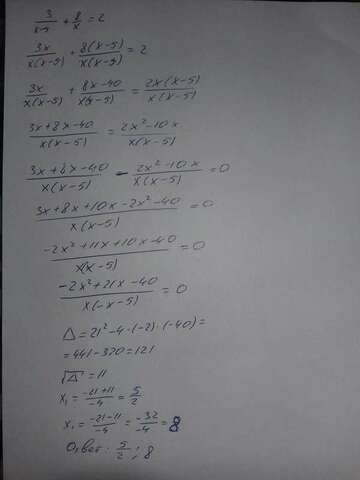 3/(x-5) + 8/x = 2
3x/(x(x-5)) + 8(x-5)/(x(x-5)) = 2
3x/(x(x-5)) + (8x-40)/(x(x-5)) = 2x(x-5)/(x(x-5))
(3x+8x-40)/(x(x-5)) = (2x²-10x)/(x(x-5))
(3x+8x-40)/(x(x-5)) - (2x²-10x)/(x(x-5)) = 0
(3x+8x+10x-2x²-40)/(x(x-5)) = 0
(-2x²+11x+10x-40)/(x(x-5)) = 0
(-2x²+21x-40)/(x(-x-5)) = 0
Δ = 21²-4·(-2)·(-40) =
= 441-320 = 121
√Δ = 11
x₁ = (-21+11)/-4 = 5/2
x₁ = (-21-11)/-4 = -32/-4 = 8
Ответ: 5/2; 8